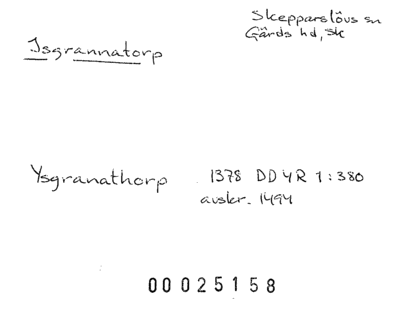 Isgrannatorp
Skepparslövs sn
Gärds hd, Sk
Ysgranathorp 1378 DD 4R 1:380
avskr. 1494
00025158